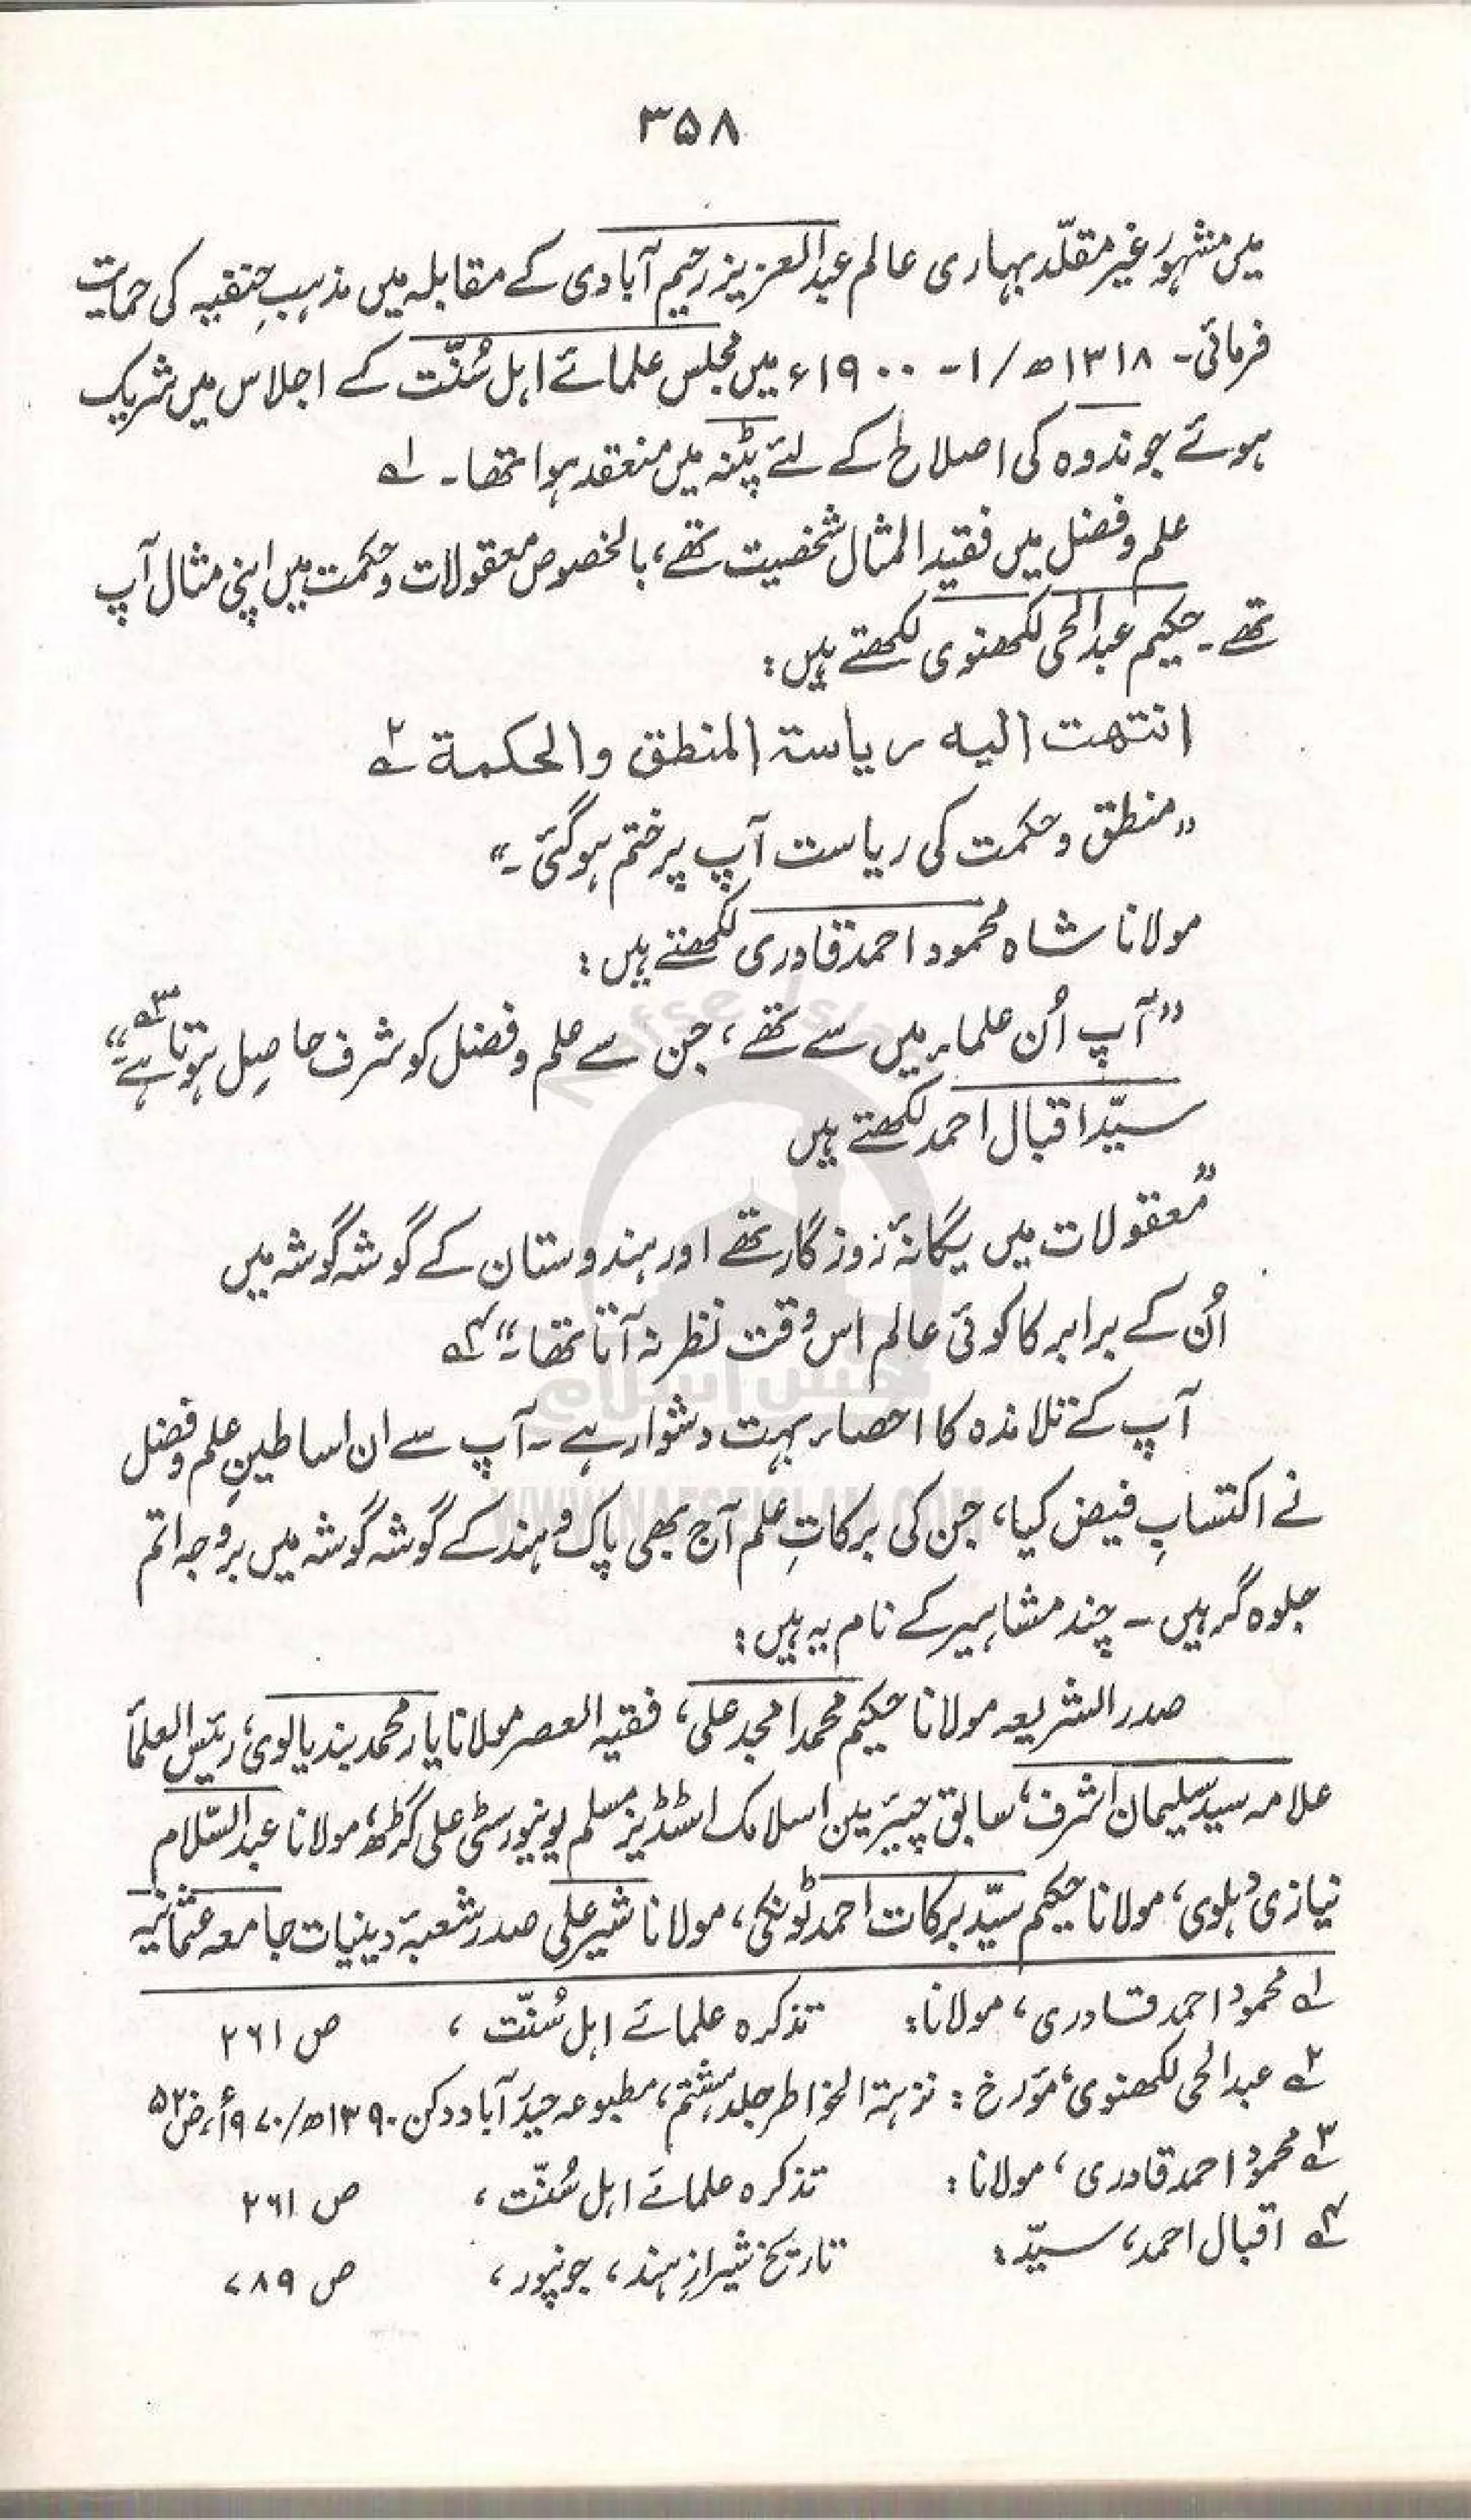 ۳۵۸
میں مشہور غیر مقلّد بہاری عالم عبدالعزیز رحیم آبادی کے مقابلہ میں مذہبِ حنفیہ کی حمایت
فرمائی۔ ۱۳۱۸ھ/۱-۱۹۰۰ء میں مجلس علمائے اہل سُنّت کے اجلاس میں شریک
ہوئے جو ندوہ کی اصلاح کے لئے پٹنہ میں منعقد ہوا تھا۔ ۱؎
علم و فضل میں فقید المثال شخصیت تھے، بالخصوص معقولات و حکمت میں اپنی مثال آپ
تھے۔ حکیم عبدالحی لکھنوی لکھتے ہیں:
انتھت الیہ ریاسۃ المنطق والحکمۃ ۲؎
”منطق و حکمت کی ریاست آپ پر ختم ہوگئی۔“
مولانا شاہ محمود احمد قادری لکھتے ہیں:
”آپ اُن علماء میں سے تھے، جن سے علم و فضل کو شرف حاصِل ہوتا ہے“ ۳؎
سیّد اقبال احمد لکھتے ہیں
”معقولات میں یگانۂ روزگار تھے اور ہندوستان کے گوشہ گوشہ میں
اُن کے برابر کا کوئی عالم اس وقت نظر نہ آتا تھا۔“ ۴؎
آپ کے تلامذہ کا احصاء بہت دشوار ہے۔ آپ سے ان اساطینِ علم و فضل
نے اکتسابِ فیض کیا، جن کی برکاتِ علم آج بھی پاک و ہند کے گوشہ گوشہ میں بروجہ اتم
جلوہ گر ہیں۔ چند مشاہیر کے نام یہ ہیں:
صدر الشریعہ مولانا حکیم محمد امجد علی، فقیہ العصر مولانا یار محمد بندیالوی، رئیس العلمأ
علامہ سید سلیمان اشرف، سابق چیئرمین اسلامک اسٹڈیز مسلم یونیورسٹی علی گڑھ، مولانا عبدالسّلام
نیازی دہلوی، مولانا حکیم سیّد برکات احمد ٹونکی، مولانا شیر علی صدر شعبۂ دینیات جامعہ عثمانیہ
۱؎ محمود احمد قادری، مولانا: تذکرہ علمائے اہل سُنّت، ص ۲۶۱
۲؎ عبدالحی لکھنوی، مؤرخ: نزہۃ الخواطر جلد ہشتم، مطبوعہ حیدر آباد دکن ۱۳۹۰ھ/۱۹۷۰ء، ص ۵۲
۳؎ محمود احمد قادری، مولانا: تذکرہ علمائے اہل سُنّت، ص ۲۶۱
۴؎ اقبال احمد، سیّد: تاریخ شیرازِ ہند، جونپور، ص ۷۸۹
Nafse Islam
نفس اسلام
WWW.NAFSEISLAM.COM